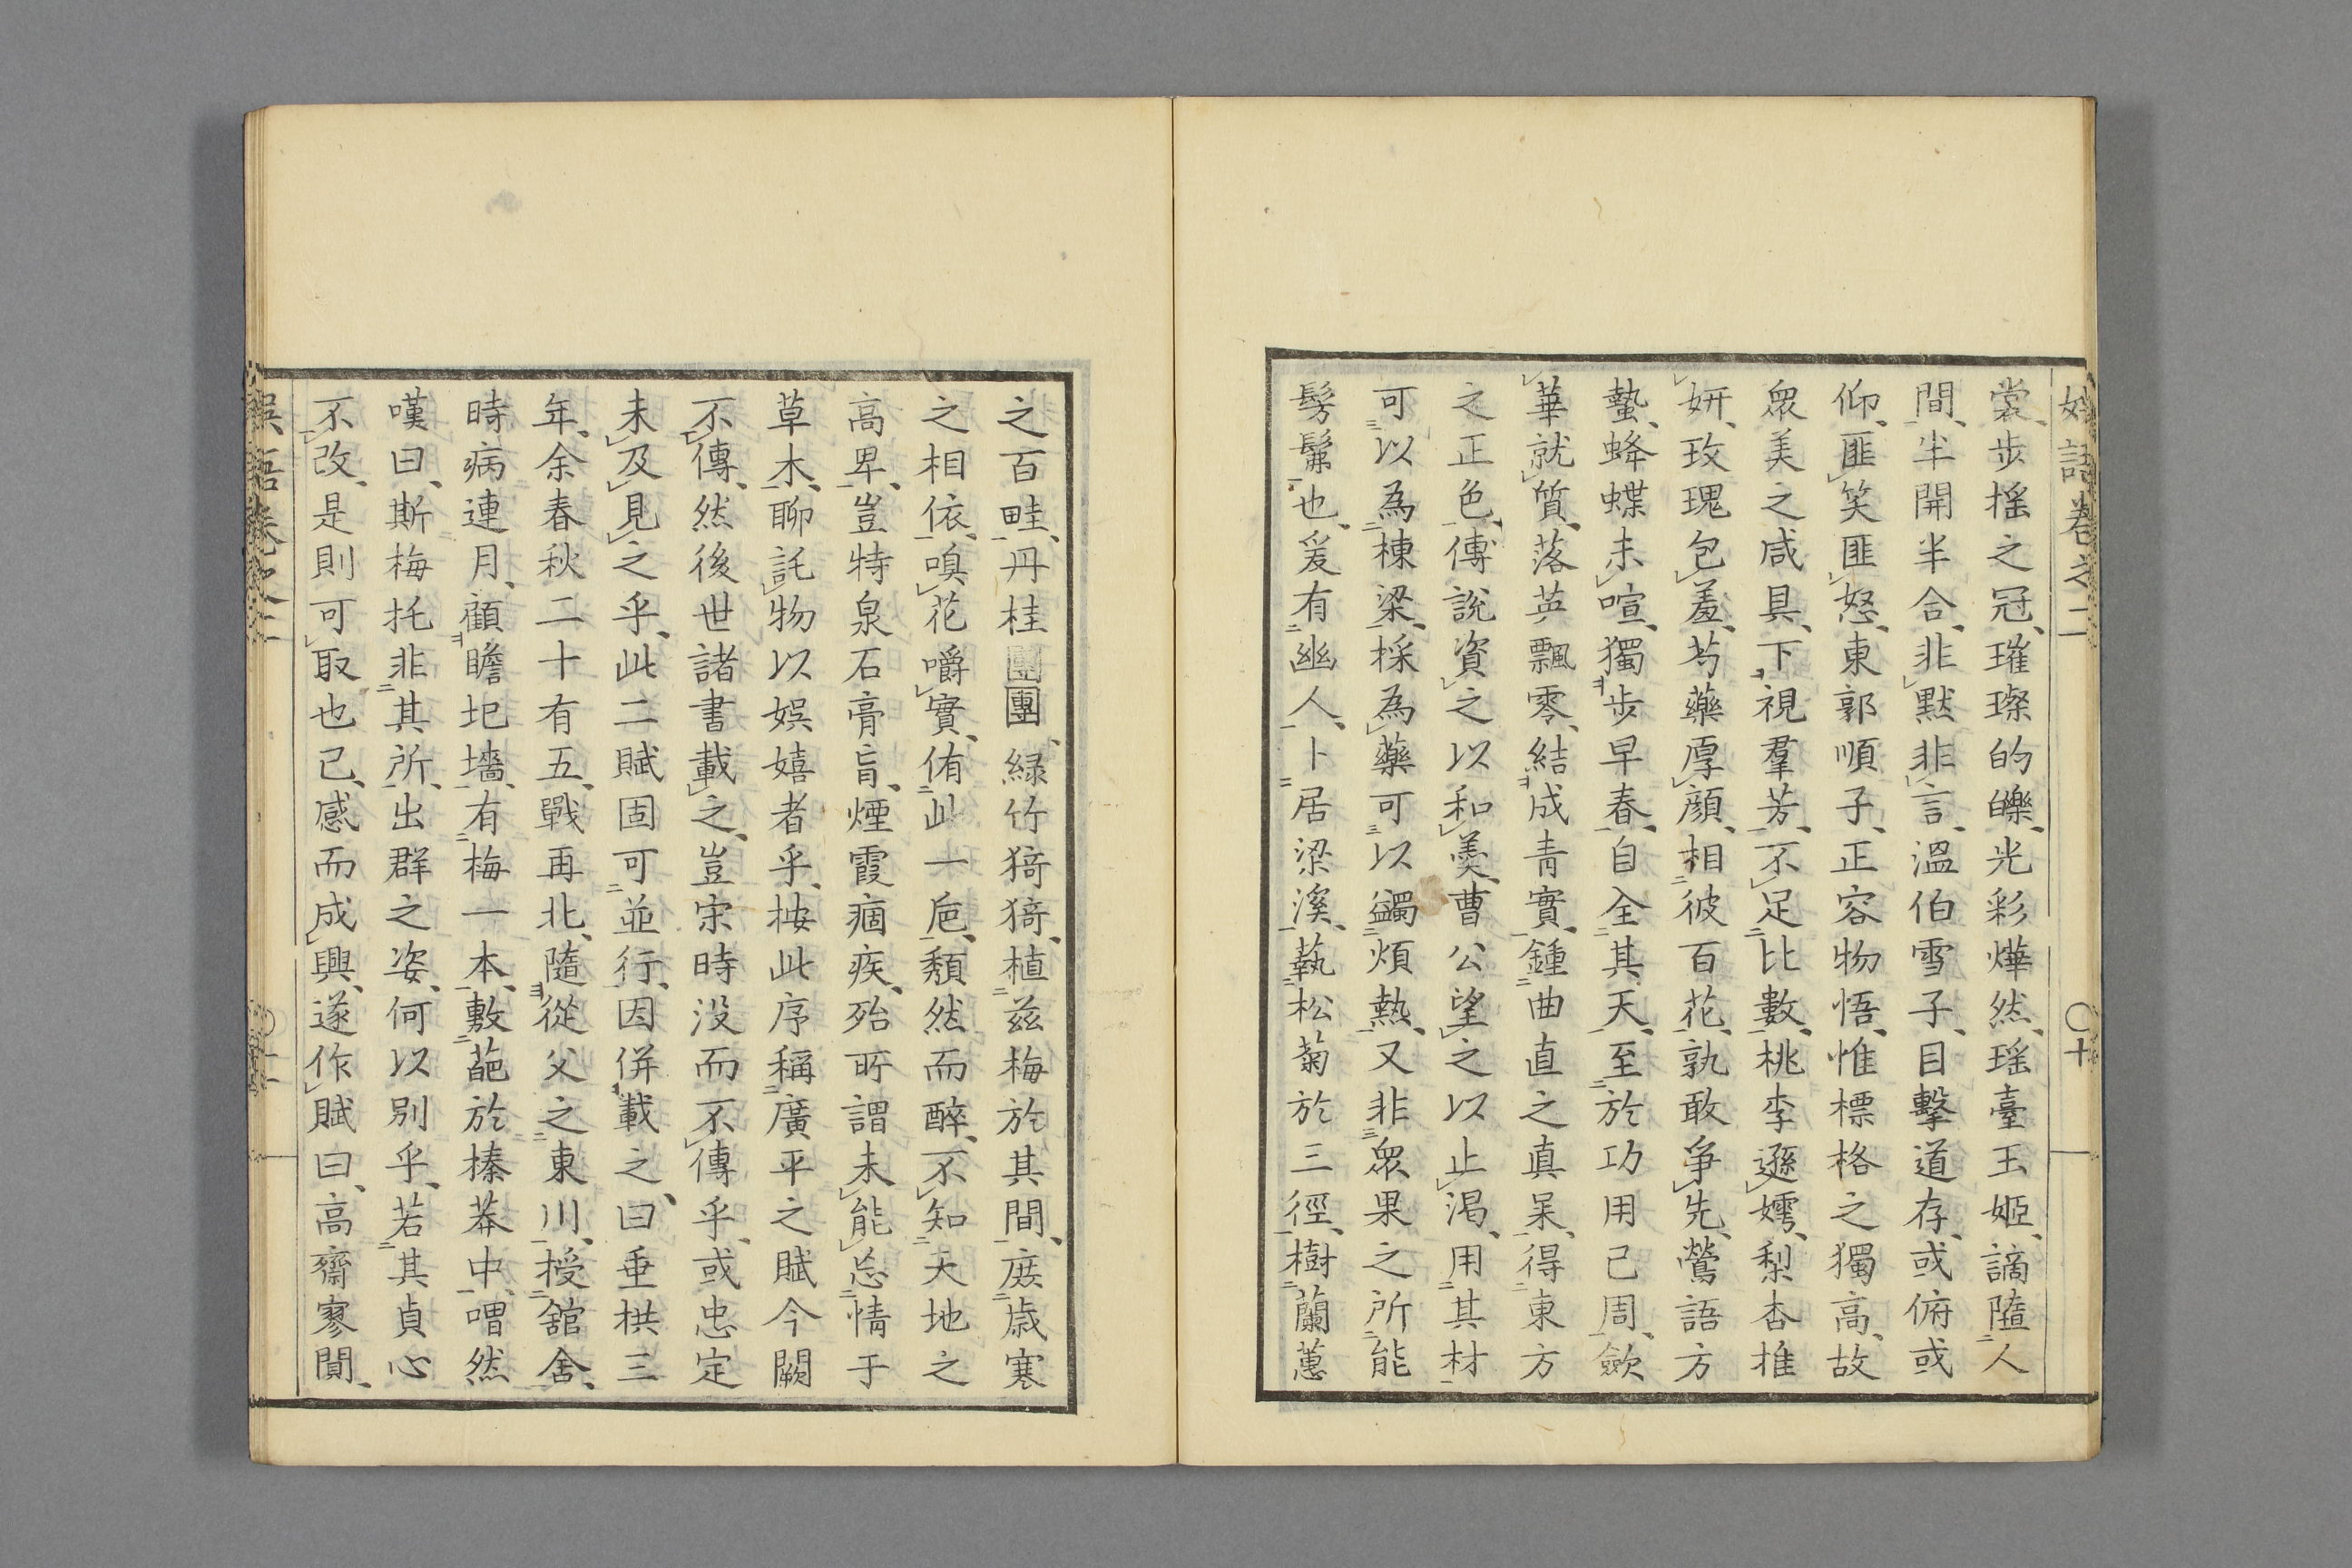 娯語卷之二
〇十
裳、歩揺之冠、璀璨的皪、光彩燁然、瑤臺玉姬、謫隨人
間、半開半合、非默非言、溫伯雪子、目擊道存、或俯或
仰、匪笑匪怒、東郭順子、正容物悟、惟標格之獨高、故
衆美之咸具、下視羣芳、不足比數、桃李遜嫮、梨杏推
妍、玫瑰包羞、芍藥厚顔、相彼百花、孰敢爭先、鶯語方
蟄、蜂蝶未喧、獨歩早春、自全其天、至於功用已周、歛
華就質、落英飄零、結成青實、鍾曲直之真杲、得東方
之正色、傅說資之以和羹、曹公望之以止渴、用其材
可以為棟梁、採為藥可以蠲煩熱、又非衆果之所能
髣髴也、爰有幽人、卜居梁溪、蓺松菊於三徑、樹蘭蕙
之百畦、丹桂團團、緑竹猗猗、植茲梅於其間、庶歳寒
之相依、嗅花嚼實、侑此一巵、頽然而醉、不知天地之
高卑、豈特泉石膏肓、煙霞痼疾、殆所謂未能忘情于
草木、聊託物以娯嬉者乎、按此序稱廣平之賦今闕
不傳、然後世諸書載之、豈宋時没而不傳乎、或忠定
未及見之乎、此二賦固可並行、因併載之、曰垂拱三
年、余春秋二十有五、戰再北、隨從父之東川、授舘舍、
時病連月、顧瞻圯墻、有梅一本、敷葩於榛莽中、喟然
嘆曰、斯梅托非其所、出群之姿、何以別乎、若其貞心
不改、是則可取也已、感而成興、遂作賦曰、高齋寥闃、